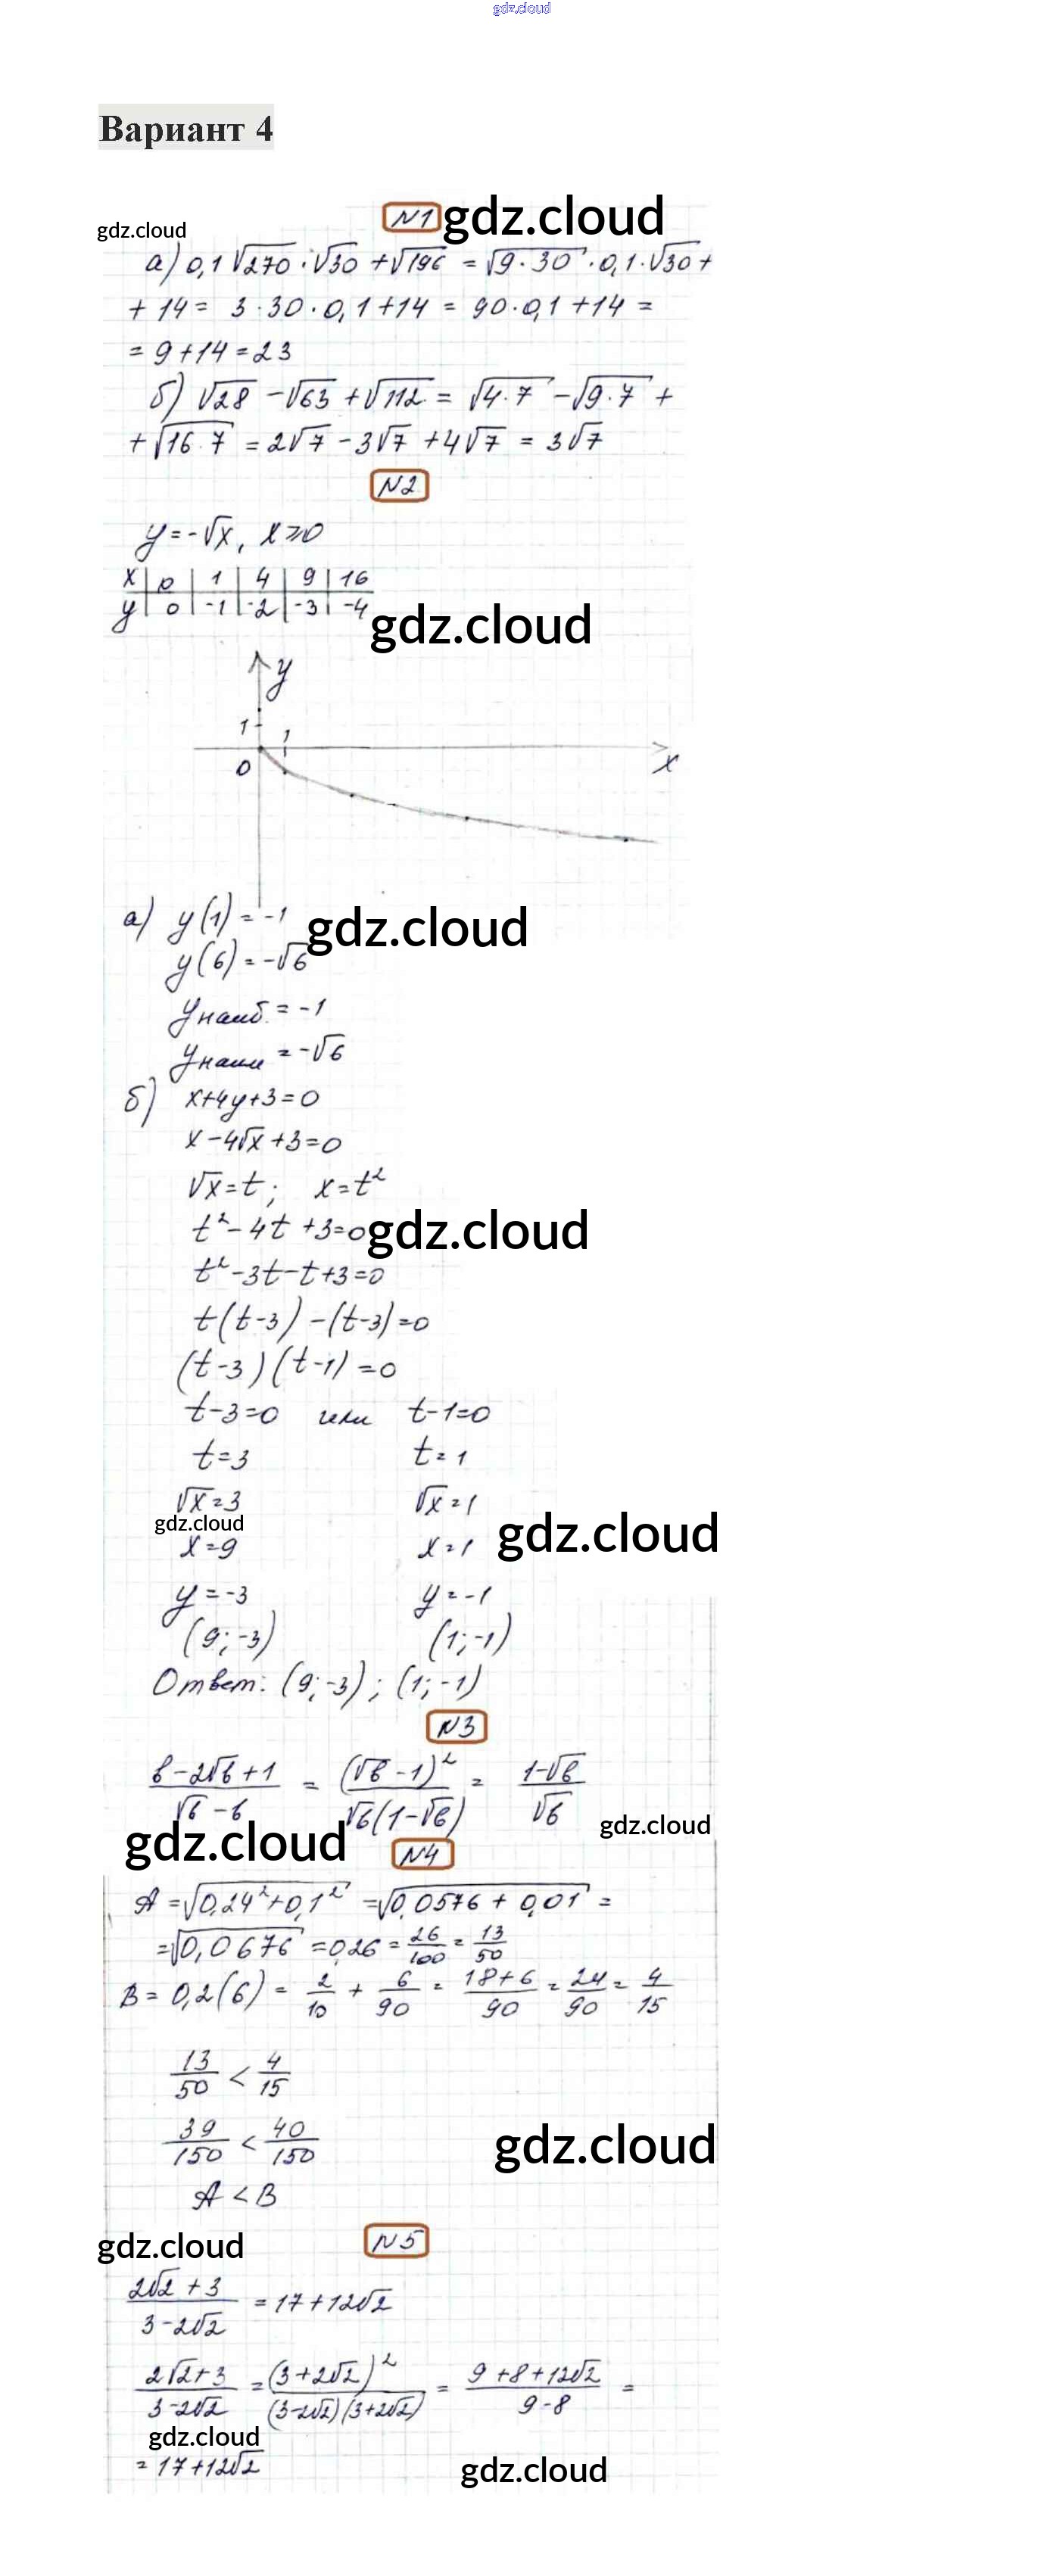 gdz.cloud
Вариант 4
N1 gdz.cloud
gdz.cloud
а) 0,1 √270 · √30 + √196 = √9·30 · 0,1 · √30 +
+ 14 = 3·30·0,1+14 = 90·0,1+14 =
= 9+14=23
б) √28 - √63 + √112 = √4·7 - √9·7 +
+ √16·7 = 2√7 - 3√7 + 4√7 = 3√7
N2
y = -√x, x ≥ 0
x | 0 | 1 | 4 | 9 | 16
y | 0 | -1 | -2 | -3 | -4
gdz.cloud
y
1
1
0
x
а) y(1) = -1 gdz.cloud
y(6) = -√6
y наиб. = -1
y наим = -√6
б) x+4y+3=0
x-4√x+3=0
√x=t; x=t²
t²-4t+3=0 gdz.cloud
t²-3t-t+3=0
t(t-3)-(t-3)=0
(t-3)(t-1)=0
t-3=0 или t-1=0
t=3 t=1
√x=3 √x=1
gdz.cloud gdz.cloud
x=9 x=1
y=-3 y=-1
(9;-3) (1;-1)
Ответ: (9;-3); (1;-1)
N3
(b-2√b+1)/(√b-b) = (√b-1)²/(√b(1-√b)) = (1-√b)/√b
gdz.cloud gdz.cloud
N4
A = √0,24²+0,1² = √0,0576+0,01 =
= √0,0676 = 0,26 = 26/100 = 13/50
B = 0,2(6) = 2/10 + 6/90 = (18+6)/90 = 24/90 = 4/15
13/50 < 4/15
39/150 < 40/150
gdz.cloud
A < B
gdz.cloud N5
(2√2+3)/(3-2√2) = 17+12√2
(2√2+3)/(3-2√2) = (3+2√2)²/((3-2√2)(3+2√2)) = (9+8+12√2)/(9-8) =
gdz.cloud
= 17+12√2
gdz.cloud